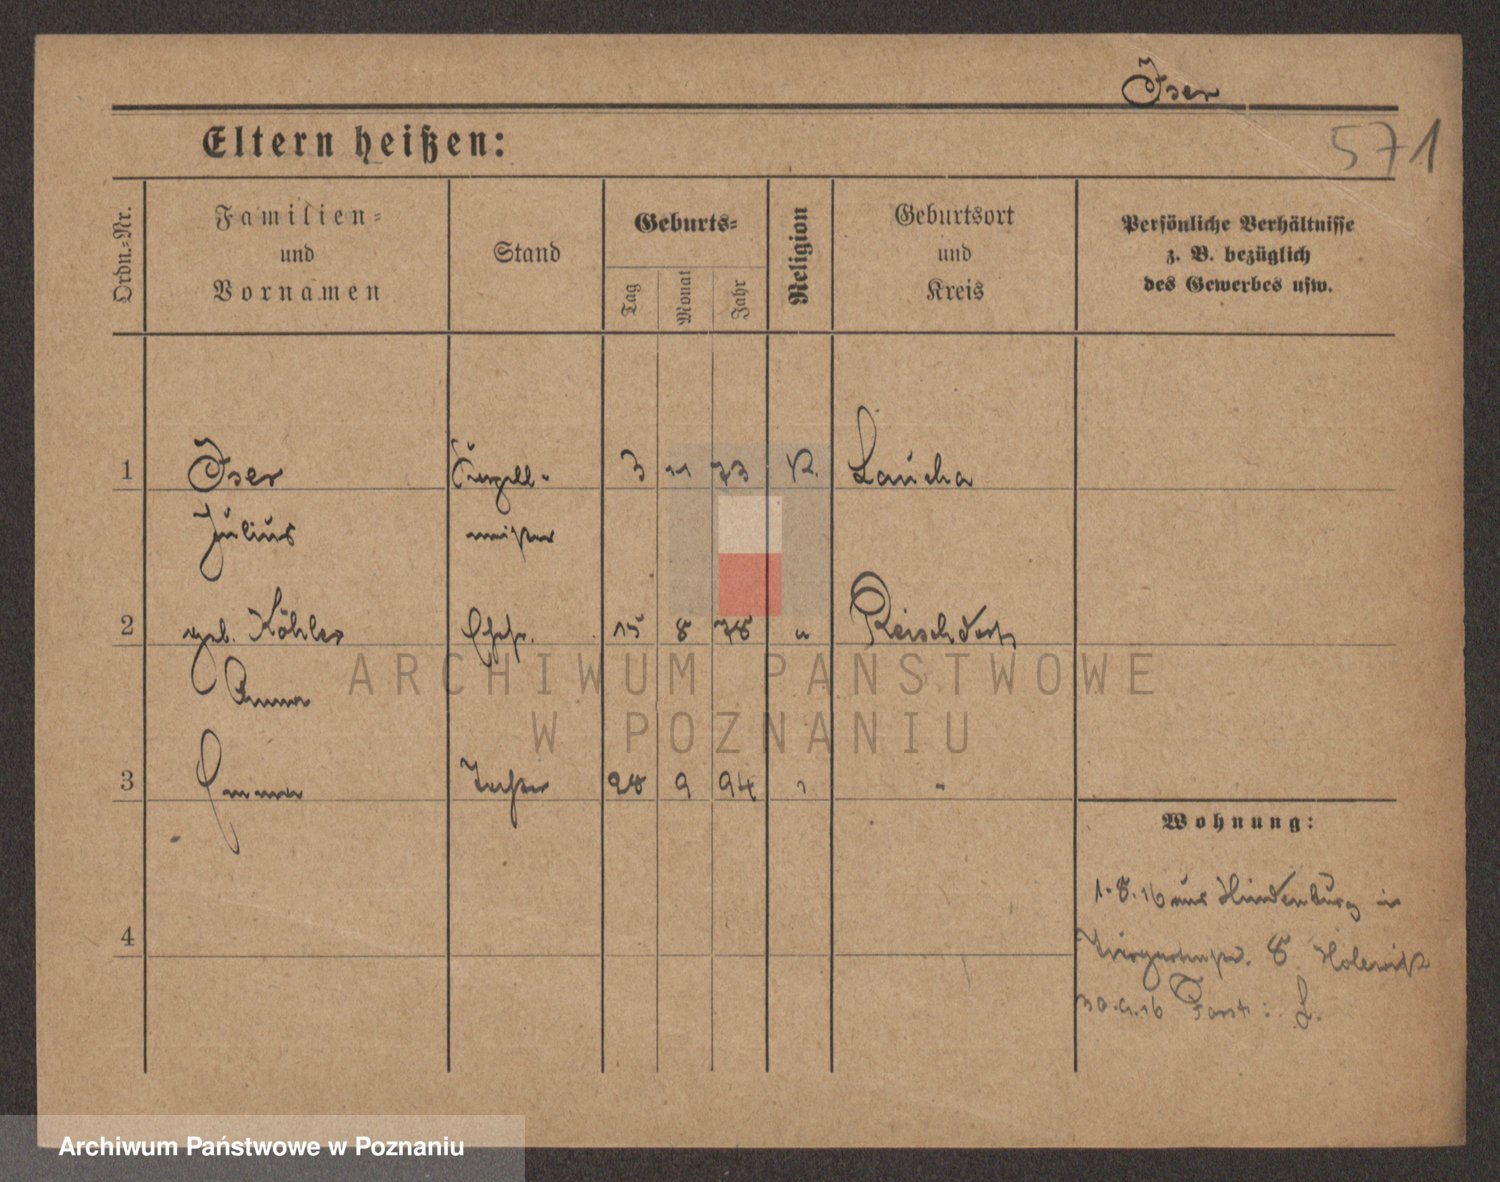 Iser
571
Eltern heißen:
Ordn.-Nr.
Familien-
und
Vornamen
Stand
Geburts-
Tag
Monat
Jahr
Religion
Geburtsort
und
Kreis
Persönliche Verhältnisse
z. B. bezüglich
des Gewerbes usw.
1 Iser 3 11 73 Laucha
Julius meister
2 geb. Köhler Ehefr. 15 8 78 " Reischdorf
Anna
3 Emma Tochter 28 9 94 " "
Wohnung:
1.8.16 aus Hindenburg in
Tiergartenstr. 8
30.9.16 Forst
4
ARCHIWUM PAŃSTWOWE
W POZNANIU
Archiwum Państwowe w Poznaniu